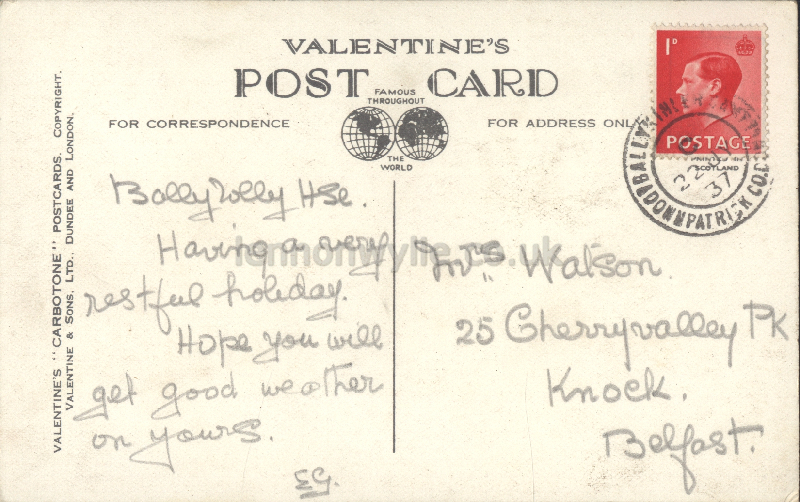 VALENTINE'S
POST CARD
FAMOUS
THROUGHOUT
THE
WORLD
FOR CORRESPONDENCE
FOR ADDRESS ONLY
1D
POSTAGE
PRINTED IN
SCOTLAND
37
DOWNPATRICK CO. DOWN
VALENTINE'S "CARBOTONE" POSTCARDS. COPYRIGHT.
VALENTINE & SONS, LTD., DUNDEE AND LONDON.
Ballyholly Hse.
Having a very
restful holiday.
Hope you will
get good weather
on yours.
Mrs Watson.
25 Cherryvalley Pk
Knock.
Belfast.